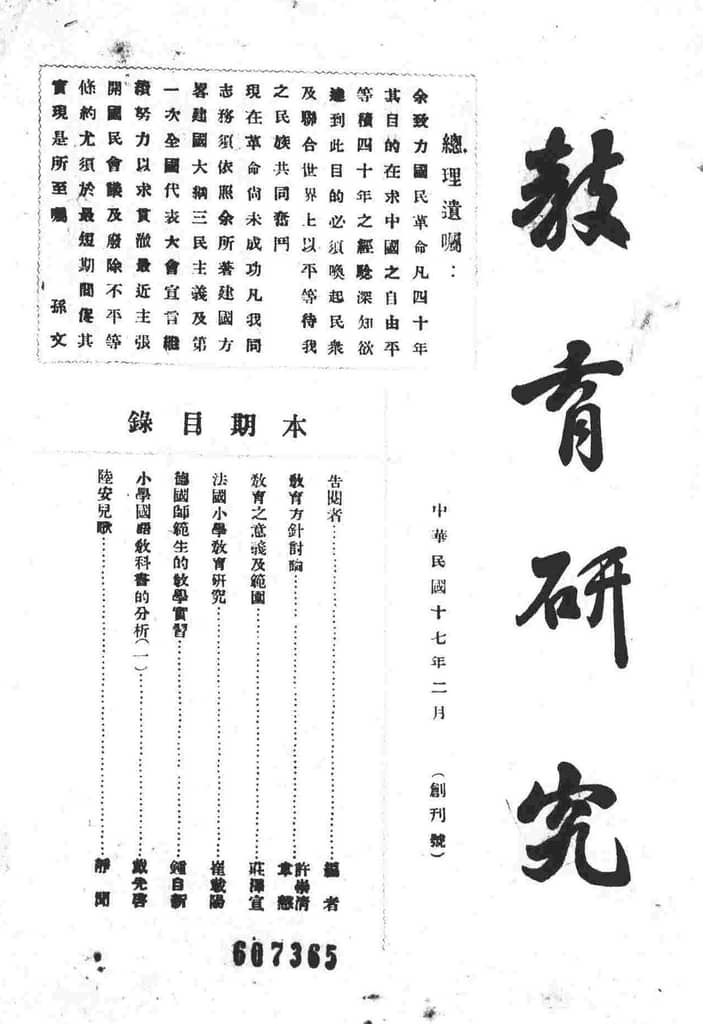 教育研究
中華民國十七年二月 (創刊號)
總理遺囑：
余致力國民革命凡四十年
其目的在求中國之自由平
等積四十年之經驗深知欲
達到此目的必須喚起民衆
及聯合世界上以平等待我
之民族共同奮鬥
現在革命尚未成功凡我同
志務須依照余所著建國方
畧建國大綱三民主義及第
一次全國代表大會宣言繼
續努力以求貫澈最近主張
開國民會議及廢除不平等
條約尤須於最短期間促其
實現是所至囑 孫文
本期目錄
告閱者 編者
教育方針討論 許崇清 韋慤
教育之意義及範圍 莊澤宣
法國小學教育研究 崔載陽
德國師範生的教學實習 鍾自新
小學國語教科書的分析(一) 戴允啓
陸安兒歌 靜聞
607365